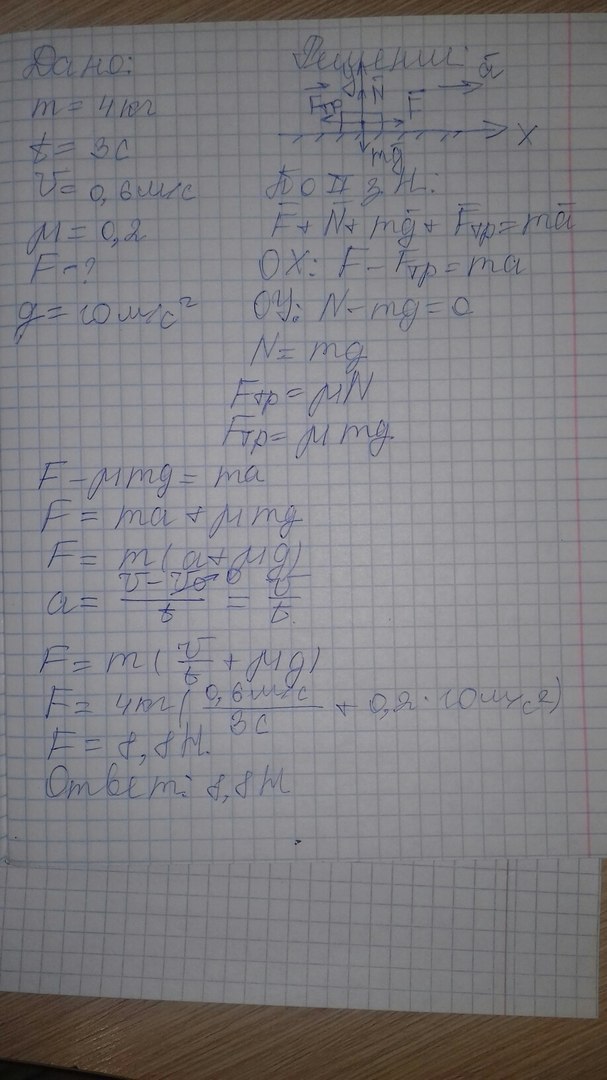 Дано:
m = 4 кг
t = 3 с
V = 0,6 м/с
μ = 0,2
F - ?
g = 10 м/с²
Решение:
y
N̄ ā
Fтр F̄
X
mḡ
По II з Н:
F̄ + N̄ + mḡ + F̄тр = mā
OX: F - Fтр = ma
OY: N - mg = 0
N = mg
Fтр = μN
Fтр = μmg
F - μmg = ma
F = ma + μmg
F = m(a + μg)
a = (V - V₀ 0)/t = V/t
F = m(V/t + μg)
F = 4 кг(0,6 м/с / 3 с + 0,2 · 10 м/с²)
F = 8,8 Н.
Ответ: 8,8 Н